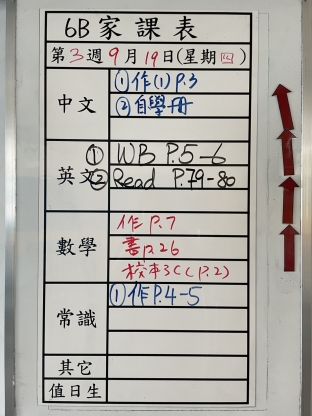 6B 家課表
第3週9月19日(星期四)
中文
①作(1)P.3
②自學冊
英文
① WB P.5-6
② Read P.79-80
數學
作P.7
書P.26
校本3C(P.2)
常識
①作P.4-5
其它
值日生